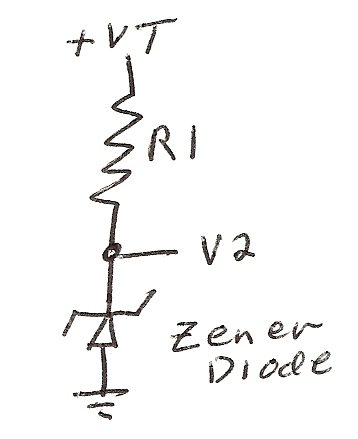 +VT
R1
V2
Zener
Diode